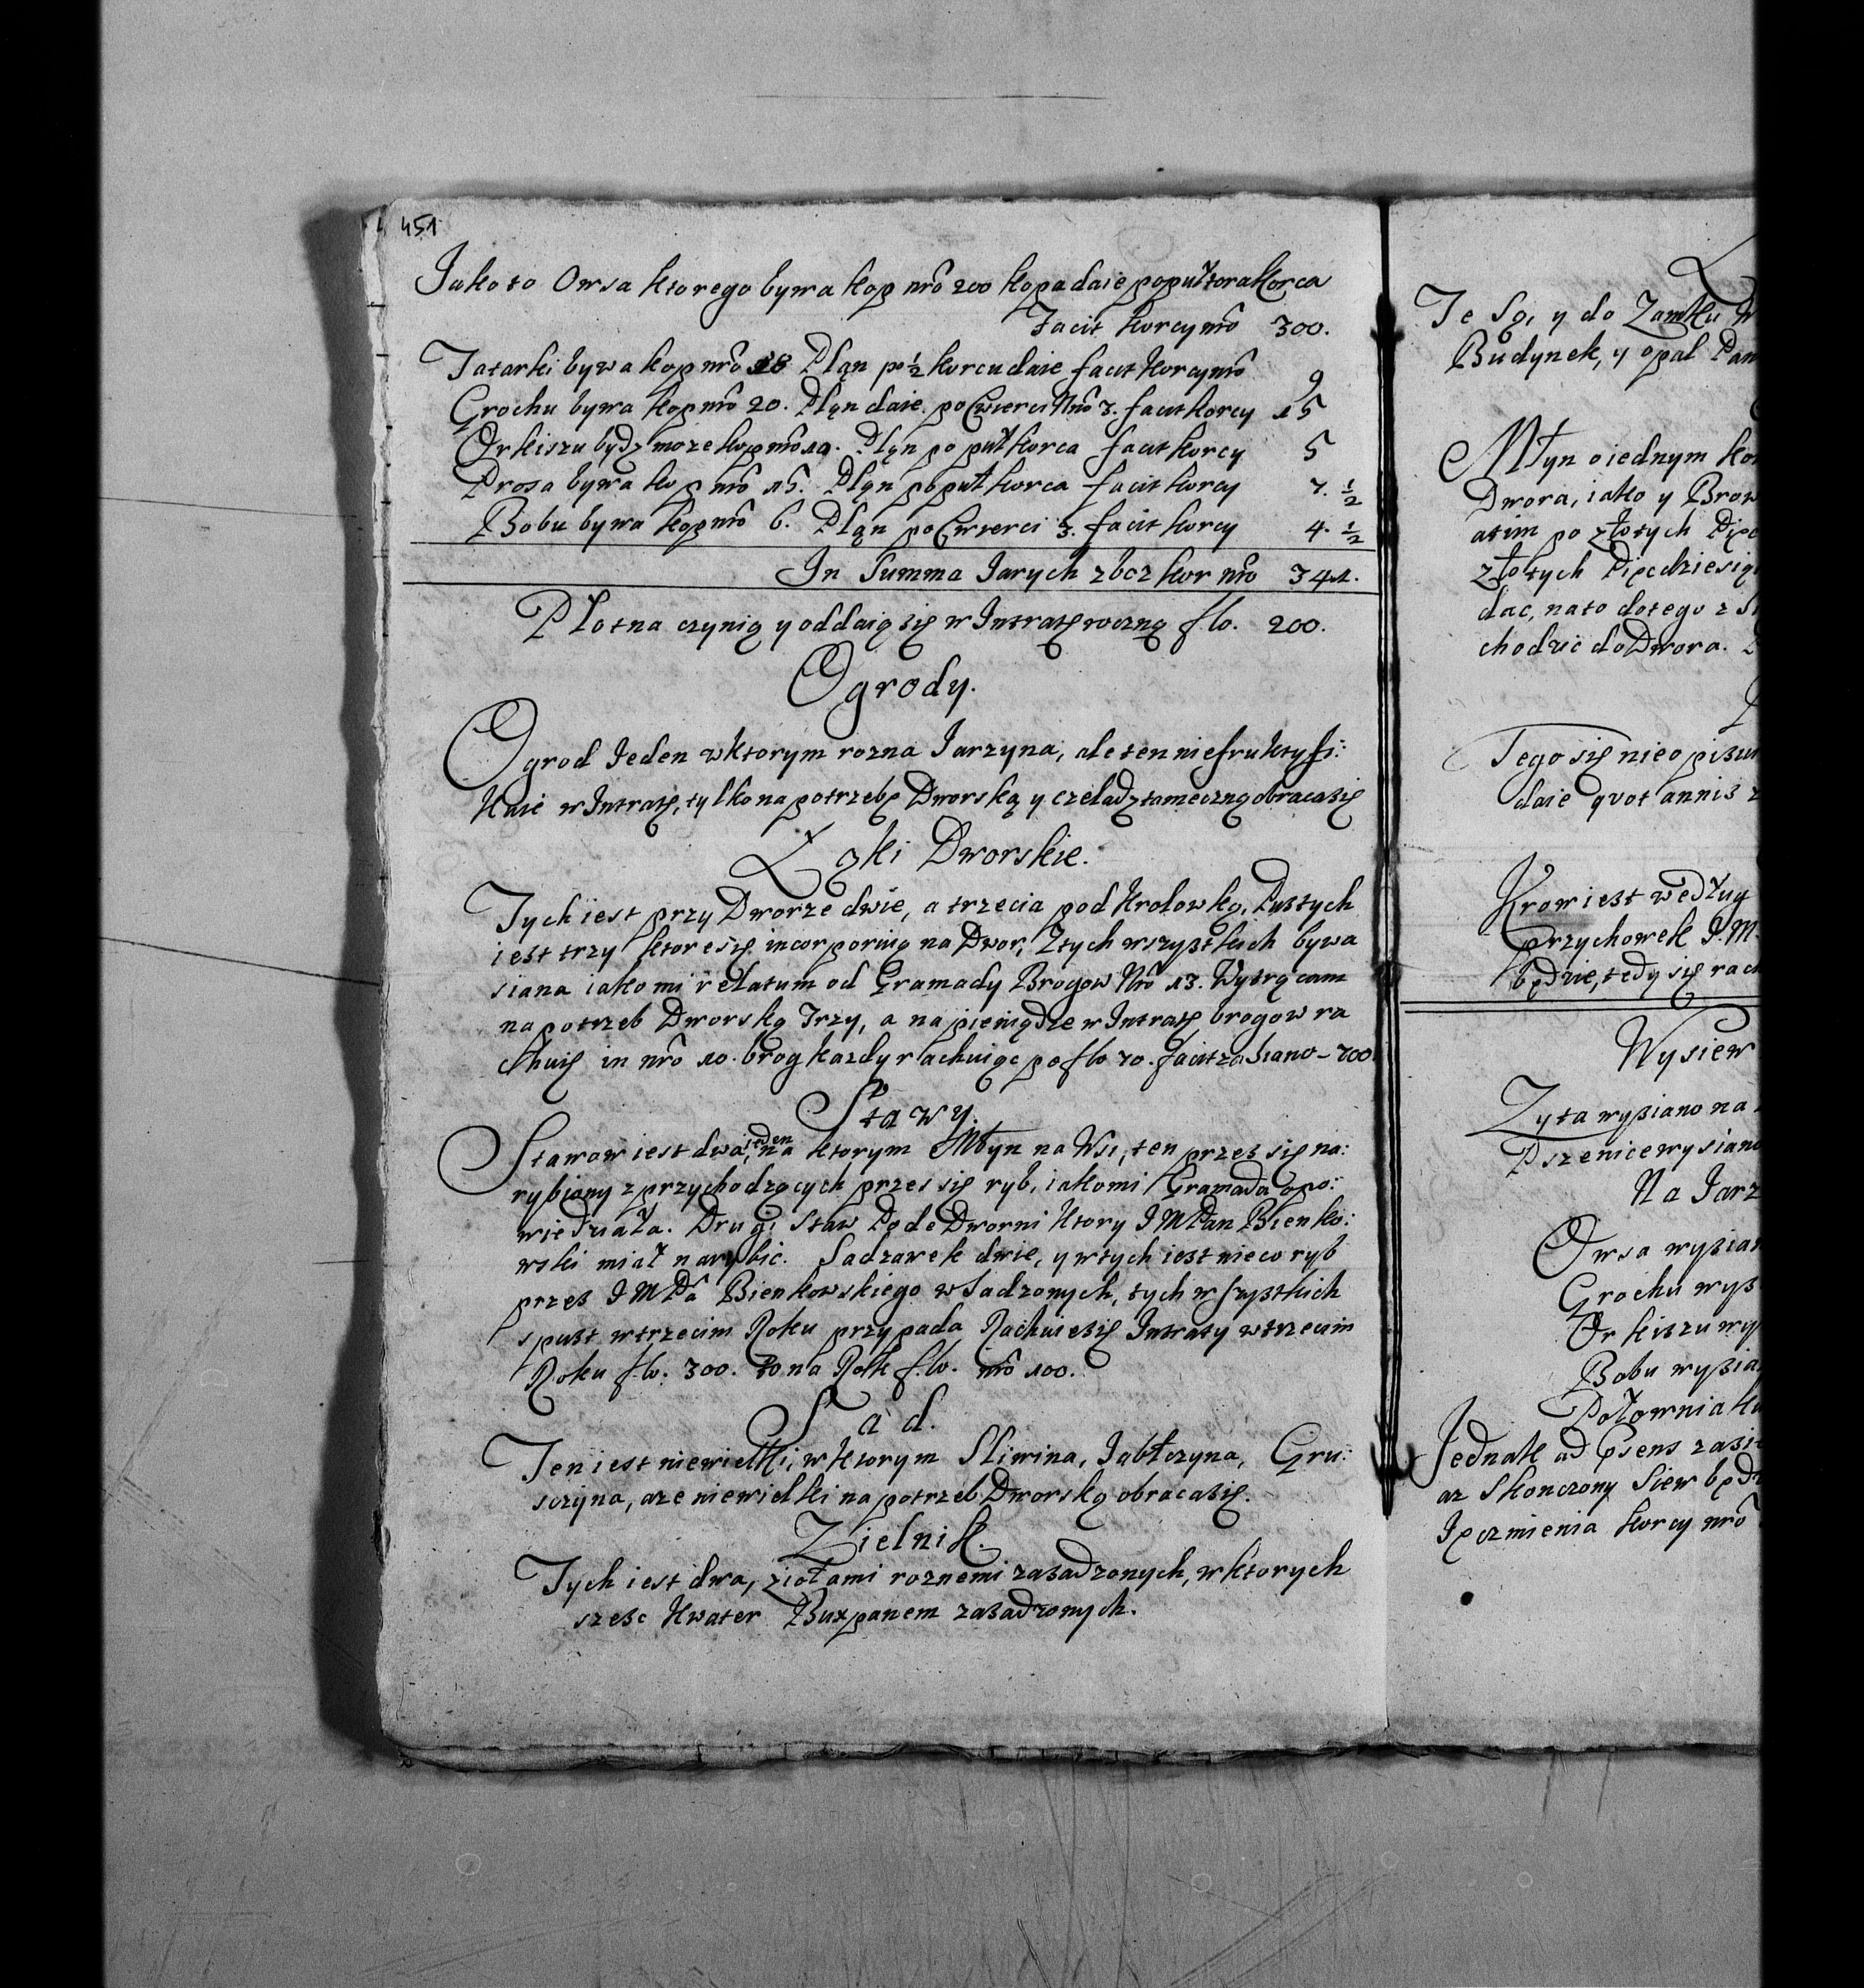 451
Jako to Owsa ktorego bywa kop nro 200 kopa daie po pułtora korca
Facit korcy nro 300.
Tatarki bywa kop nro 18 Pląn po ½ korcu daie facit korcy nro 9
Grochu bywa kop nro 20. Pląn daie po Cwierci Nro 3. facit korcy 15
Orkiszu bydz moze kop nro 10. Pląn po puł korca facit korcy 5
Prosa bywa kop nro 15. Pląn po puł korca facit korcy 7. ½
Bobu bywa kop nro 6. Pląn po Cwierci 3. facit korcy 4. ½
In Summa Jarych zboz kor nro 341.
Płotna czynią y oddaią się w Intratę roczną flo. 200.
Ogrody.
Ogrod Jeden w ktorym rozna Jarzyna, ale ten niefruktyfi:
kuie w Intratę, tylko na potrzebę Dworską y czeladz tameczną obraca się
Łąki Dworskie.
Tych iest przy Dworze dwie, a trzecia pod Krolowką, Pustych
iest trzy ktore się incorporuią na Dwor, Z tych wszystkich bywa
siana iako mi relatum od Gramady Brogow Nro 13. Wytrącam
na potrzeb Dworską Trzy, a na pieniądze w Intratę brogow ra
chuię in nro 10. brog kazdy rachuiąc po flo 70. facit za siano - 700
Stawy.
Stawow iest dwa, ieden na ktorym Młyn na Wsi, ten przez się na:
rybiony z przychodzących przez się ryb, iako mi Gramada opo:
wiedziała. Drugi Staw Pode Dworni ktory J M Pan Bienko:
wski miał narybic. Sadzawek dwie, y w tych iest nieco ryb
przez J M Pa Bienkowskiego wsadzonych, tych wszystkich
spust w trzecim Roku przypada Rachuie się Intraty w trzecim
Roku flo. 300. to na Rok flo. nro 100.
Sad.
Ten iest niewielki, w ktorym Sliwina, Jabłczyna, Gru:
szyna, aze niewielki na potrzeb Dworską obraca się.
Zielnik.
Tych iest dwa, ziołami roznemi zasadzonych, w ktorych
szesc Kwater Buxpanem zasadzonych.
Te Są, y do Zamku
Budynek, y opał Pan
Młyn o iednym
Dwora, iako y
atim po złotych
złotych
dac, na to do tego z
chodzic do Dwora.
Tego się nie
daie quot annis
Krow iest według
przychowek J. M.
będzie, tedy się
Wysiew
Zyta wysiano na
Pszenice wysiano
Na
Owsa
Grochu
Orkiszu
Bobu
Jednak ad
az Skonczony Siew
Jęczmienia korcy nro